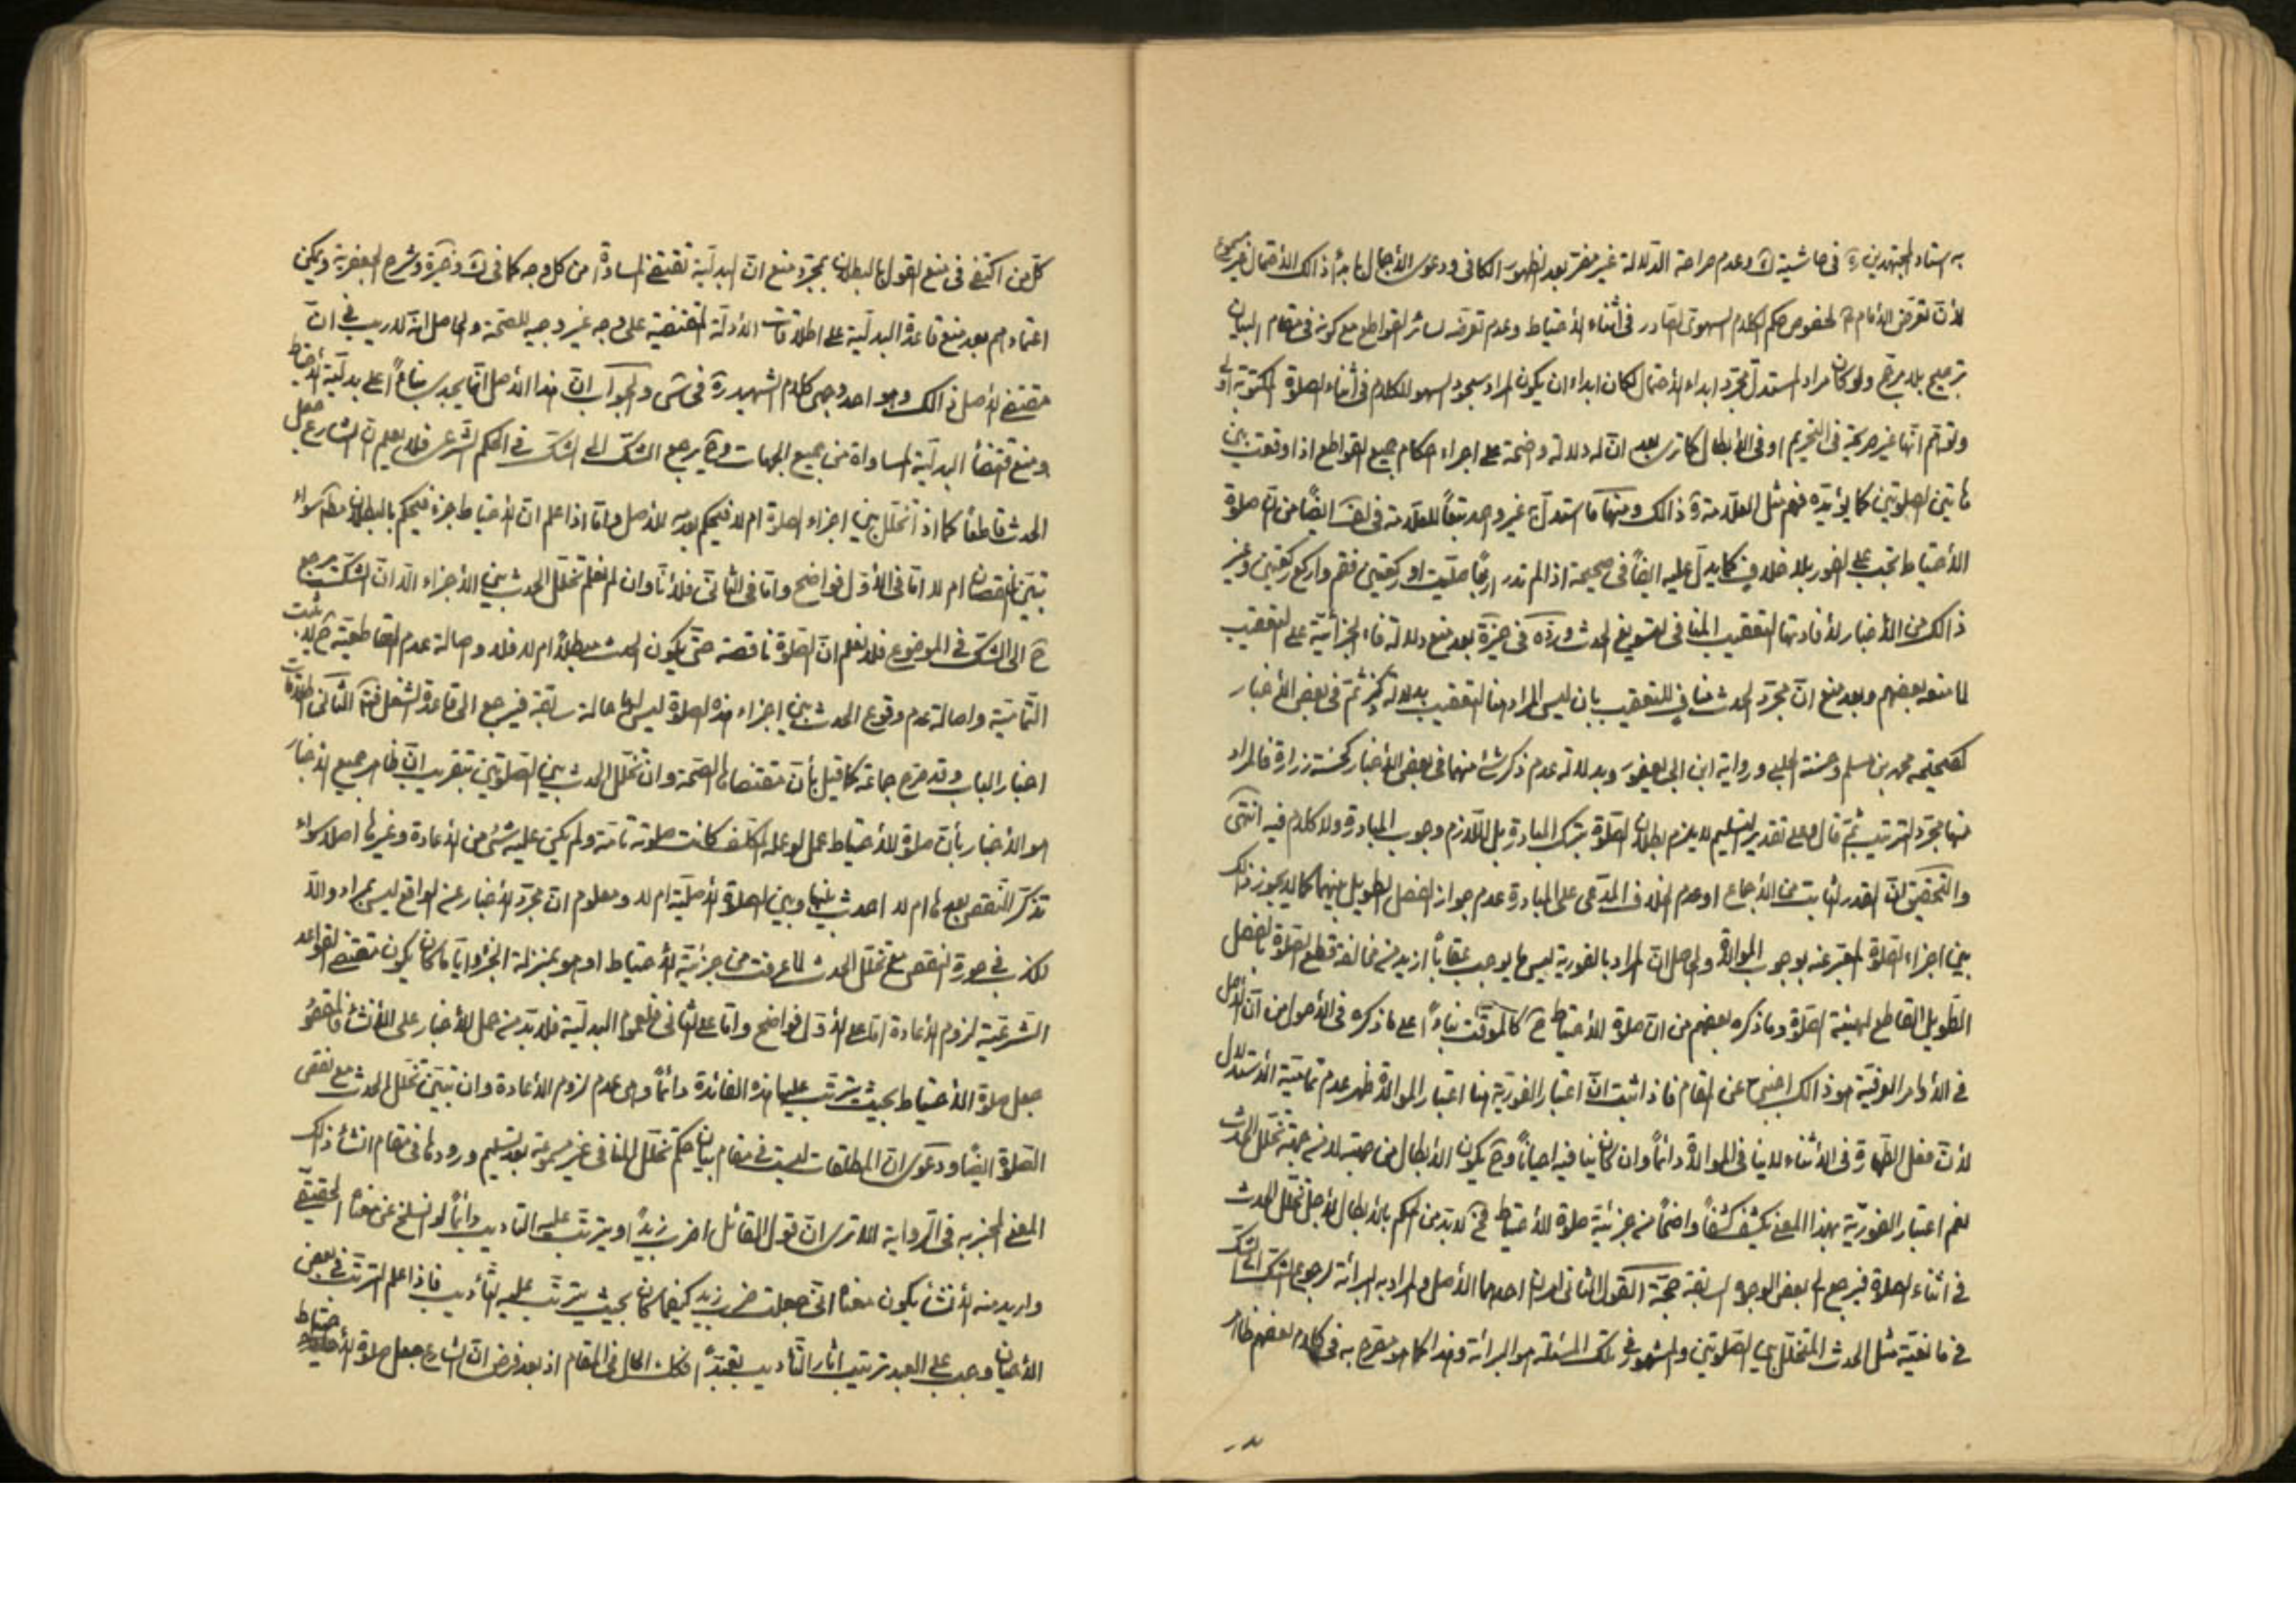 به استاد المجتهدين ره في حاشية لك وعدم صراحة الدلالة غير مضرّ بعد الظهور الكافي ودعوى الأجمال بابداء ذالك الأحتمال غير مسموع
لأن تعرّض الأمام ع لخصوص حكم الكلام السهوي الصادر في أثناء الأحتياط وعدم تعرضه لسائر القواطع مع كونه في مقام البيان
ترجيح بلا مرجّح ولو كان مراد المستدل مجرّد ابداء الأحتمال لكان ابداء ان يكون المراد سجود السهو للكلام في أثناء الصلوة المكتوبة
وتوهّم انّها غير صريحة في التحريم او في الأبطال كما ترى بعد انّ له دلالة واضحة على اجراء احكام جميع القواطع اذا وقعت بين
هاتين الصلوتين كما يؤيّده فهم مثل العلّامة ره ذالك ومنها ما استدلّ به غير واحد تبعاً للعلّامة في لف ايضاً من انّ صلوة
الأحتياط تجب على الفور بلا خلاف كما يدلّ عليه ايضاً في صحيحة اذا لم تدر اربعاً صلّيت او ركعتين فقم واركع ركعتين وغير
ذالك من الأخبار لأفادتها التعقيب المنافي لتسويغ الحدث وردّه في خيرة بعد منع دلالة فاء الجزائية على التعقيب
لما منعه بعضهم وبعد منع انّ مجرّد الحدث مناف للتعقيب بان ليس المراد هنا التعقيب بدلالة ذكر ثمّ في بعض الأخبار
كصحيحة محمد بن مسلم وحسنة الحلبي ورواية ابن ابي يعفور وبدلالة عدم ذكر شئ منهما في بعض الأخبار كحسنة زرارة فالمراد
منها مجرّد الترتيب ثمّ قال وعلى تقدير التسليم لا يلزم بطلان الصلوة بترك المبادرة بل اللازم وجوب المبادرة ولا كلام فيه انتهى
والتحقيق انّ القدر الثابت من الأجماع او عدم الخلاف المدّعى على المبادرة عدم جواز الفصل الطويل بينهما كما لا يجوز ذلك
بين اجزاء الصلوة المعبّر عنه بوجوب الموالاة والحاصل انّ المراد بالفورية ليس ما يوجب عقاباً ازيد من مخالفة قطع الصلوة بالفصل
الطويل القاطع لهيئة الصلوة وما ذكره بعضهم من انّ صلوة الأحتياط ح كالموقّت بناءً على ما ذكره في الأصول من انّ الأصل
في الأوامر الفورية هو ذالك اجنبي عن المقام فاذا ثبت انّ اعتبار الفورية هنا اعتبار الموالاة ظهر عدم تمامية الأستدلال
لأنّ فعل الطهارة في الأثناء لا ينافي الموالاة دائماً وان كان ينافيه احياناً وح يكون الأبطال من جهته لا من جهة تخلل الحدث
نعم اعتبار الفوريّة بهذا المعنى يكشف كشفاً واضحاً من جزئية صلوة الأحتياط فح لا بدّ من الحكم بالأبطال لأجل تخلل الحدث
في أثناء الصلوة فيرجع الى بعض الوجوه السابقة حجّة القول الثاني امران احدهما الأصل والمراد به البرائة لرجوع الشك الى الشك
في مانعيّة مثل الحدث المتخلل بين الصلوتين والمشهور في تلك المسئلة هو البرائة وهذا كما هو مصرّح به في كلام بعضهم ظاهر
كلّ من اكتفى في منع القول بالبطلان بمجرّد منع انّ البدلية تقتضي المساواة من كل وجه كما في لك وخيرة وشرح الجعفرية ويمكن
اعتمادهم بعد منع قاعدة البدلية على اطلاقات الأدلّة المقتضية على وجه غير وجيه للصحّة والحاصل انّه لا ريب في انّ
مقتضى الأصل ذالك وهو احد وجهي كلام الشهيد ره في س والجواب انّ هذا الأصل انّما يجدي بناءً على بدلية الأحتياط
ومنع اقتضاء البدلية المساواة من جميع الجهات وح يرجع الشكّ الى الشكّ في الحكم الشرعي فلا يعلم انّ الشارع جعل
الحدث قاطعاً كما اذا تخلل بين اجزاء الصلوة ام لا فيحكم بعدمه للأصل وامّا اذا علم انّ الأحتياط جزء فيحكم بالبطلان مطلقا سواء
تبيّن النقصان ام لا امّا في الأوّل فواضح وامّا في الثاني فلأنّا وان لم نعلم تخلل الحدث بين الأجزاء الّا انّ الشك يرجع
ح الى الشكّ في الموضوع فلا نعلم انّ الصلوة ناقصة حتّى يكون الحدث مبطلاً ام لا فلا واصالة عدم القاطعيّة ح لا تثبت
التماميّة واصالة عدم وقوع الحدث بين اجزاء هذه الصلوة ليس لها حالة سابقة فيرجع الى قاعدة الشغل فتدبر الثاني اطلاقات
اخبار الباب وقد صرّح جماعة كما قيل بأنّ مقتضاها الصحّة وان تخلل الحدث بين الصلوتين بتقريب انّ ظاهر جميع الأخبار
هو الأخبار بأنّ صلوة الأحتياط عمل لو عمله المكلّف كانت صلوته تامّة ولم يكن عليه شئ من الأعادة وغيرها اصلا سواء
تذكّر النقص بعدها ام لا احدث بينها وبين الصلوة الأصليّة ام لا ومعلوم انّ مجرّد الأخبار عن الواقع ليس بمراد والّا
لكذب في صورة النقص مع تخلل الحدث لما عرفت من جزئيّة الأحتياط او هو بمنزلة الجزء وايّاما كان يكون مقتضى القواعد
الشرعيّة لزوم الأعادة امّا على الأوّل فواضح وامّا على الثاني فلعموم البدلية فلا بدّ من حمل الأخبار على الأنشاء فالمقصود
جعل صلوة الأحتياط بحيث يترتّب عليها هذه الفائدة دائماً وهي عدم لزوم الأعادة وان تبيّن تخلل الحدث مع نقص
الصلوة ايضا ودعوى انّ المطلقات ليست في مقام بيان حكم تخلل المنافي غير مسموعة بعد تسليم ورودها في مقام انشاء ذلك
المعنى المخبر به في الرواية الا ترى انّ قول القائل اضرب زيداً او يترتّب عليه التأديب دائماً لو انسلخ عن معناه الحقيقي
واريد منه الأنشاء يكون معناه انّي جعلت ضرب زيد كيفما كان بحيث يترتّب عليه التأديب فاذا علم الترتّب في بعض
الأحيان وجب على العبد ترتيب اثار التأديب تعبّداً فكذا الحال في المقام اذ بعد فرض انّ الشارع جعل صلوة الأحتياط